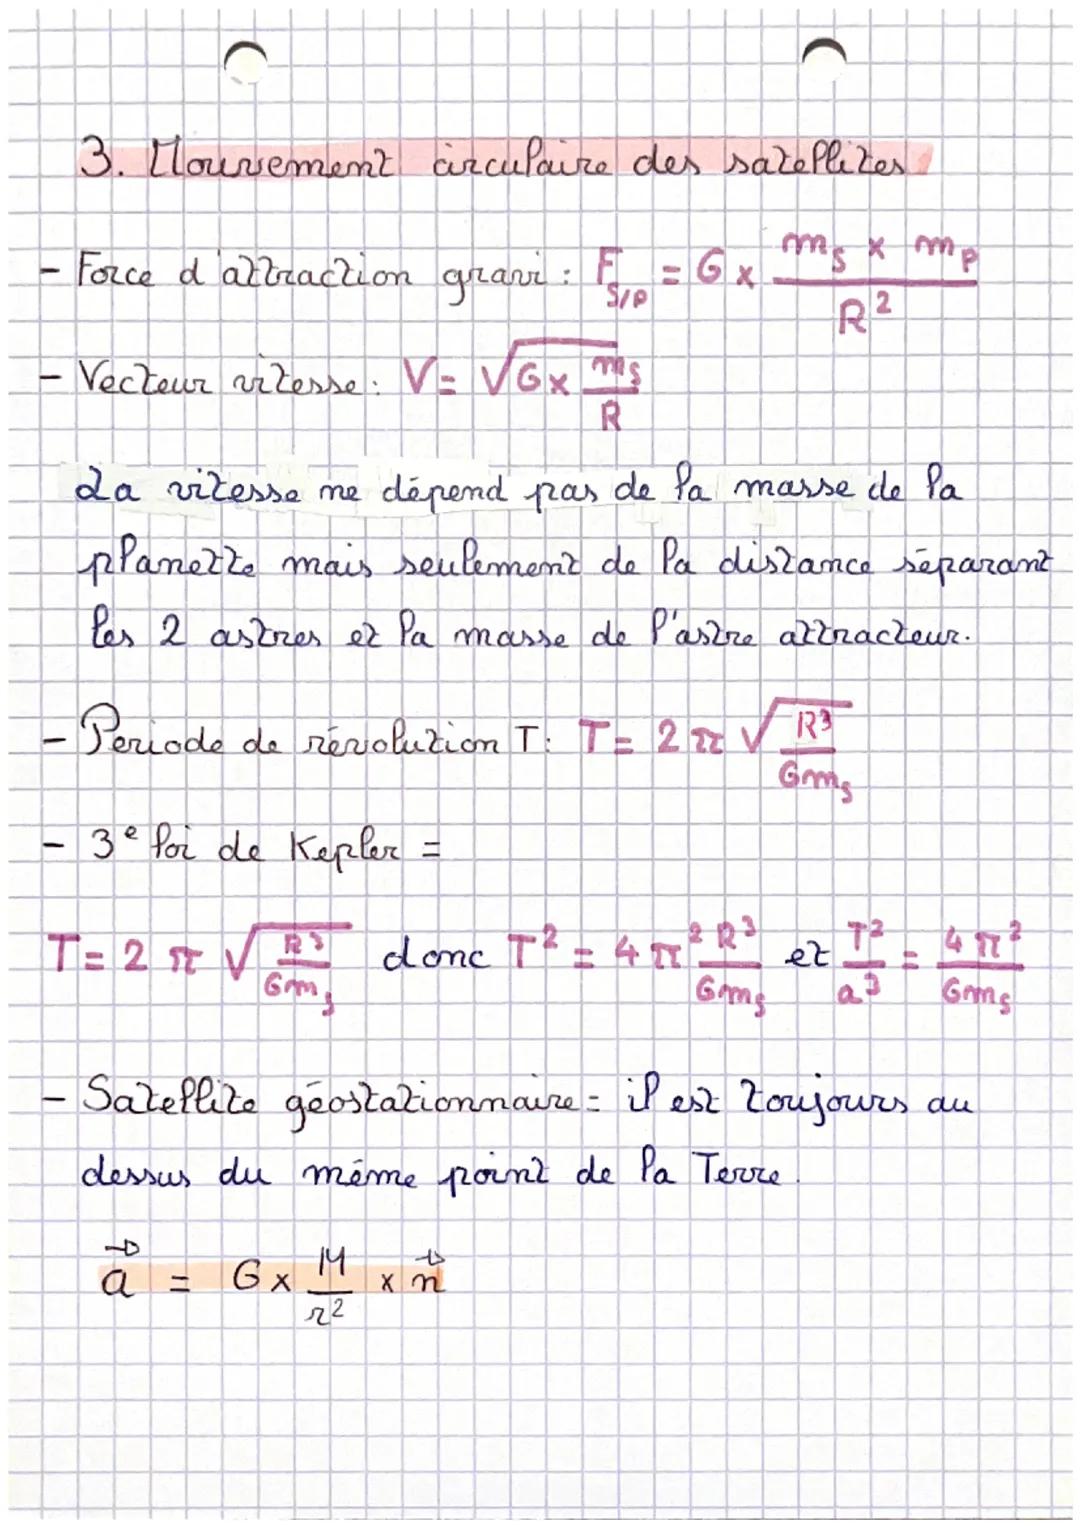 3. Mouvement circulaire des satellites
- Force d'attraction gravi : F S/P = G x (mS x mP) / R²
- Vecteur vitesse : V = √(G x mS / R)
La vitesse ne dépend pas de la masse de la
planette mais seulement de la distance séparant
les 2 astres et la masse de l'astre attracteur.
- Periode de révolution T : T = 2π √(R³ / GmS)
- 3e loi de Kepler =
T = 2π √(R³ / GmS) donc T² = 4π² R³ / GmS et T² / a³ = 4π² / GmS
- Satellite géostationnaire = il est toujours au
dessus du même point de la Terre.
a⃗ = G x M / r² x n⃗